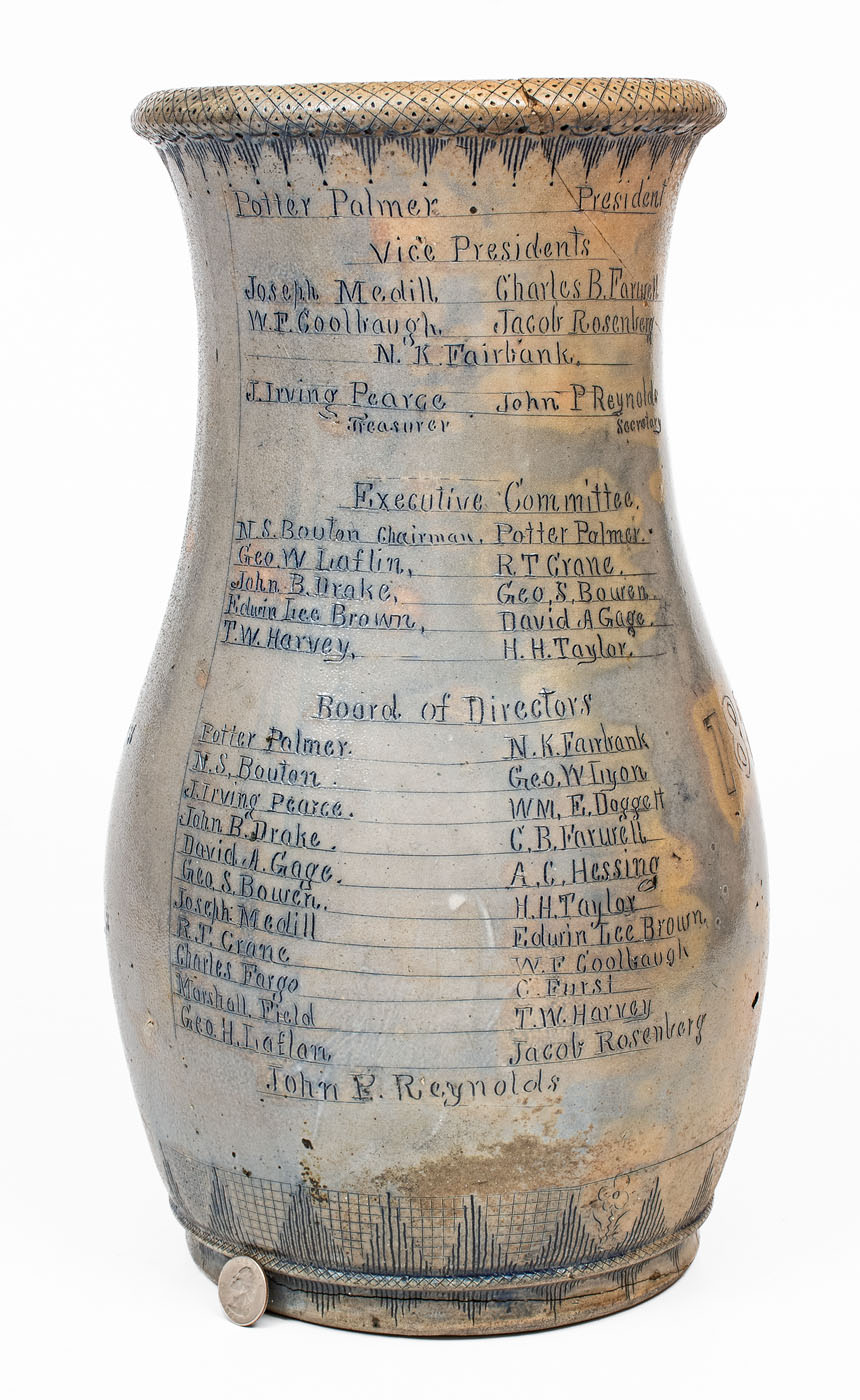 Potter Palmer President
Vice Presidents
Joseph Medill Charles B. Farwell
W.F. Coolbaugh, Jacob Rosenberg
N. K. Fairbank,
J. Irving Pearce John P Reynolds
Treasurer Secretary
Executive Committee.
N.S. Bouton Chairman, Potter Palmer.
Geo. W Laflin, R.T Crane.
John B. Drake, Geo. S. Bowen.
Edwin Lee Brown, David A Gage.
T.W. Harvey, H.H. Taylor.
Board of Directors
Potter Palmer. N.K. Fairbank
N.S. Bouton. Geo. W Lyon
J. Irving Pearce. WM. E. Doggett
John B. Drake. C.B. Farwell
David A. Gage. A.C. Hessing
Geo. S. Bowen. H.H. Taylor
Joseph Medill Edwin Lee Brown,
R.T. Crane W.F Coolbaugh
Charles Fargo C. Furst
Marshall Field T.W. Harvey
Geo. H. Laflan, Jacob Rosenberg
John P. Reynolds
18